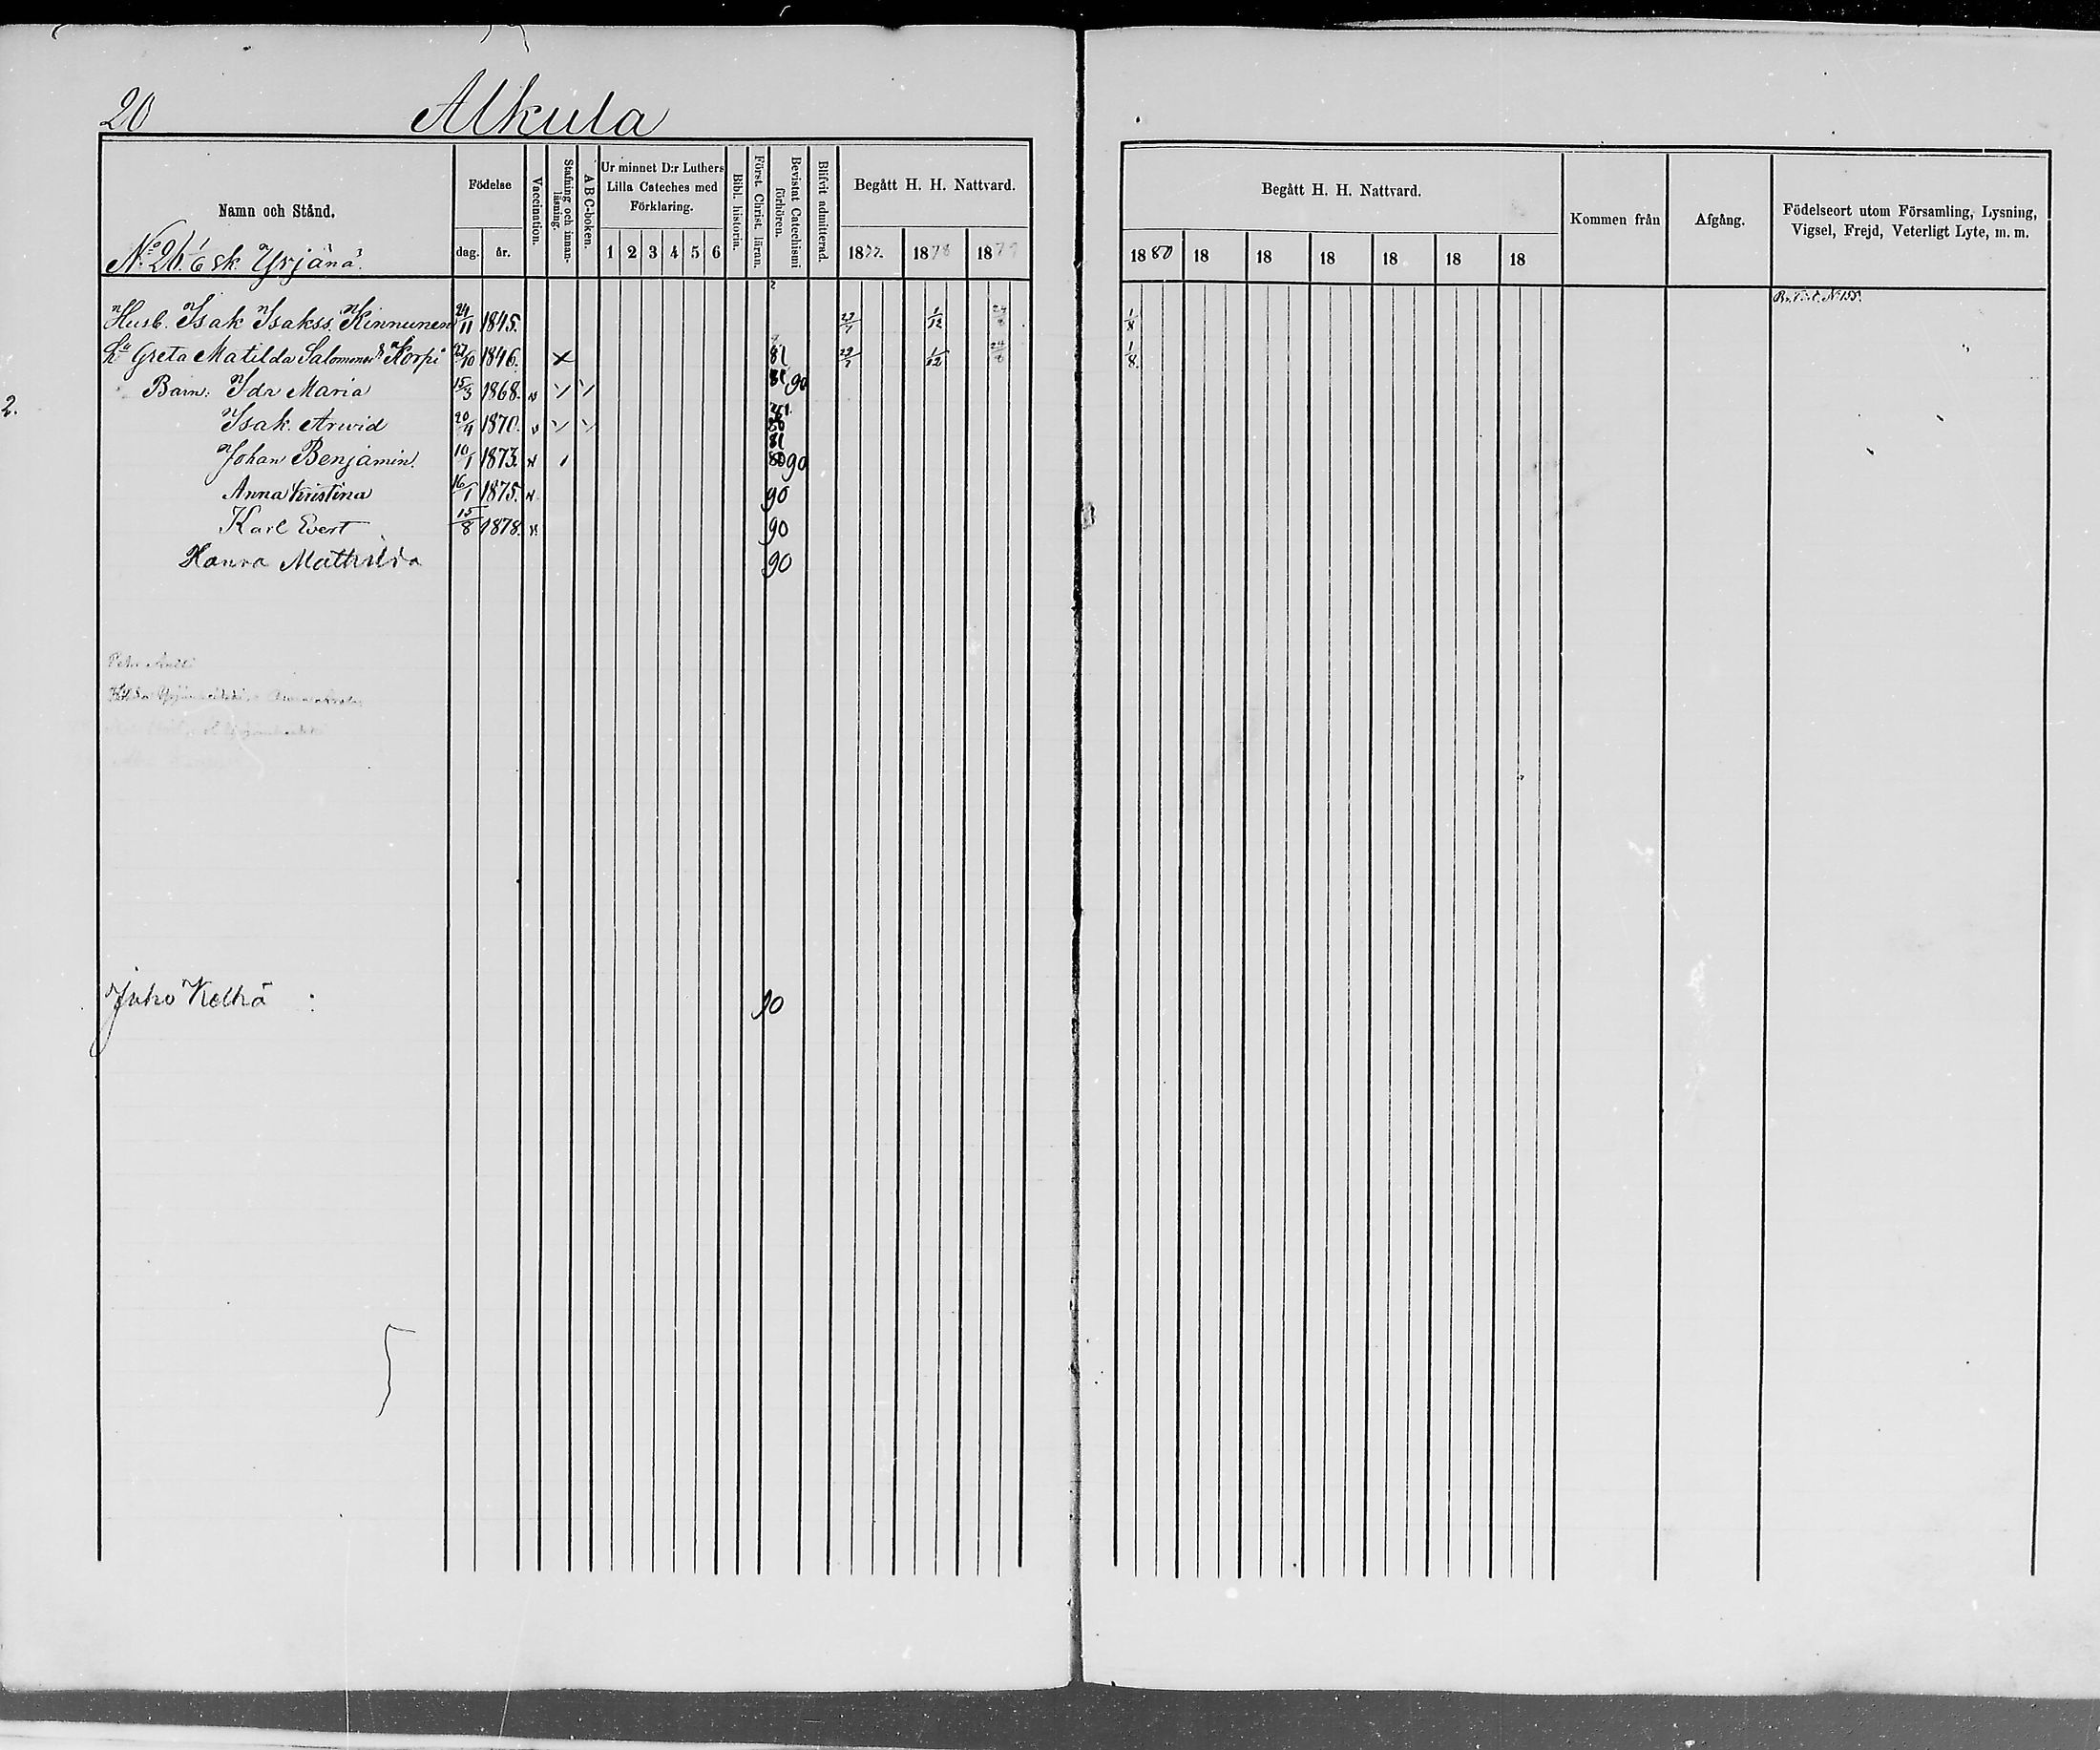 20 Alkula
Namn och Stånd. Födelse dag. år. Vaccination. Stafning och innanläsning. A B C-boken. Ur minnet D:r Luthers Lilla Cateches med Förklaring. 1 2 3 4 5 6 Bibl. historia. Först. Christ. läran. Bevistat Catechismi förhören. Blifvit admitterad. Begått H. H. Nattvard. 1877. 1878 1879
Begått H. H. Nattvard. 1880 18 18 18 18 18 18 Kommen från Afgång. Födelseort utom Församling, Lysning, Vigsel, Frejd, Veterligt Lyte, m. m.
No 26. 1/6 sk. Yrjänä.
Husb. Isak Isakss. Kinnunen 24/11 1845. 1/12 1/8 No 155.
Greta Matilda Korpi 1846. x 81 1/12 1/8.
Barn: Ida Maria 15/3 1868. 81 90
2.
Isak Arwid 20/4 1870. 81 80
Johan Benjamin. 10/1 1873. 81 80 90
Anna Kristina 16/1 1875. 90
Karl Evert 15/8 1878. 90
Hanna Mathilda 90
Juho Kelhä : 90